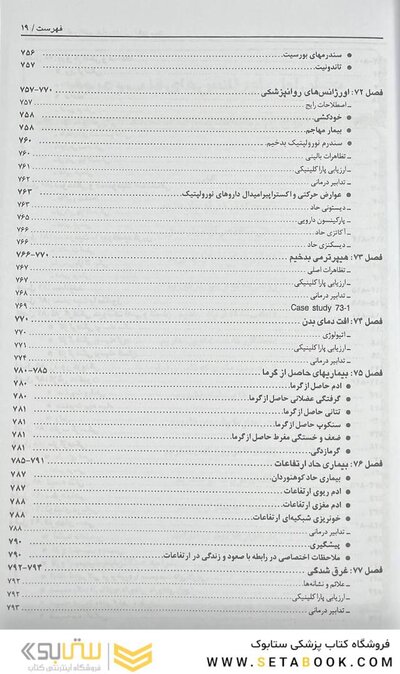 فهرست / ۱۹
● سندرمهای بورسیت ۷۵۶
● تاندونیت ۷۵۷
فصل ۷۲: اورژانس‌های روانپزشکی ۷۷۰-۷۵۷
ـ اصطلاحات رایج ۷۵۷
● خودکشی ۷۵۸
● بیمار مهاجم ۷۵۸
● سندرم نورولپتیک بدخیم ۷۶۰
ـ تظاهرات بالینی ۷۶۰
ـ ارزیابی پاراکلینیکی ۷۶۱
ـ تدابیر درمانی ۷۶۲
● عوارض حرکتی و اکستراپیرامیدال داروهای نورولپتیک ۷۶۳
ـ دیستونی حاد ۷۶۳
ـ پارکینسون دارویی ۷۶۵
ـ آکاتزی حاد ۷۶۶
ـ دیسکنزی حاد ۷۶۶
فصل ۷۳: هیپرترمی بدخیم ۷۷۰-۷۶۶
ـ تظاهرات اصلی ۷۶۷
ـ ارزیابی پاراکلینیکی ۷۶۷
ـ تدابیر درمانی ۷۶۸
Case study 73-1 ۷۶۹
فصل ۷۴: افت دمای بدن ۷۷۰
ـ اتیولوژی ۷۷۰
ـ ارزیابی پاراکلینیکی ۷۷۱
ـ تدابیر درمانی ۷۷۴
فصل ۷۵: بیماریهای حاصل از گرما ۷۸۵-۷۸۰
● ادم حاصل از گرما ۷۸۰
● گرفتگی عضلانی حاصل از گرما ۷۸۰
● تتانی حاصل از گرما ۷۸۱
● سنکوپ حاصل از گرما ۷۸۱
● ضعف و خستگی مفرط حاصل از گرما ۷۸۱
● گرمازدگی ۷۸۱
فصل ۷۶: بیماری حاد ارتفاعات ۷۹۱-۷۸۵
● بیماری حاد کوهنوردان ۷۸۷
● ادم ریوی ارتفاعات ۷۸۷
● ادم مغزی ارتفاعات ۷۸۸
● خونریزی شبکیه‌ای ارتفاعات ۷۸۸
ـ تدابیر درمانی ۷۸۸
● پیشگیری ۷۹۰
● ملاحظات اختصاصی در رابطه با صعود و زندگی در ارتفاعات ۷۹۰
فصل ۷۷: غرق شدگی ۷۹۴-۷۹۲
ـ علائم و نشانه‌ها ۷۹۲
ـ ارزیابی پاراکلینیکی ۷۹۲
ـ تدابیر درمانی ۷۹۳
فروشگاه کتاب پزشکی ستابوک
WWW.SETABOOK.COM
ستابوک
فروشگاه اینترنتی کتاب